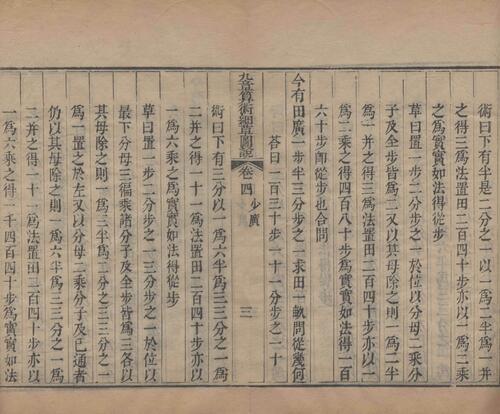 術曰下有半是二分之一以一爲二半爲一并
之得三爲法置田二百四十步亦以一爲二乘
之爲實實如法得從步
草曰置一步二分步之一於位以分母二乘分
子及全步皆爲二又以其母除之則一爲二半
爲一并之得三爲法置田二百四十步亦以一
爲二乘之得四百八十步爲實實如法得一百
六十步卽從步也合問
今有田廣一步半三分步之一求田一畝問從幾何
荅曰一百三十步一十一分步之一十
九章算術細草圖說 卷四 少廣 三
術曰下有三分以一爲六半爲三三分之一爲
二并之得一十一爲法置田二百四十步亦以
一爲六乘之爲實實如法得從步
草曰置一步二分步之一三分步之一於位以
最下分母三徧乘諸分子及全步皆爲三各以
其母除之則一爲三半爲二分之三三分之一
爲一置之於左又以分母二乘分子及已通者
仍以其母除之則一爲六半爲三三分之一爲
二并之得一十一爲法置田二百四十步亦以
一爲六乘之得一千四百四十步爲實實如法